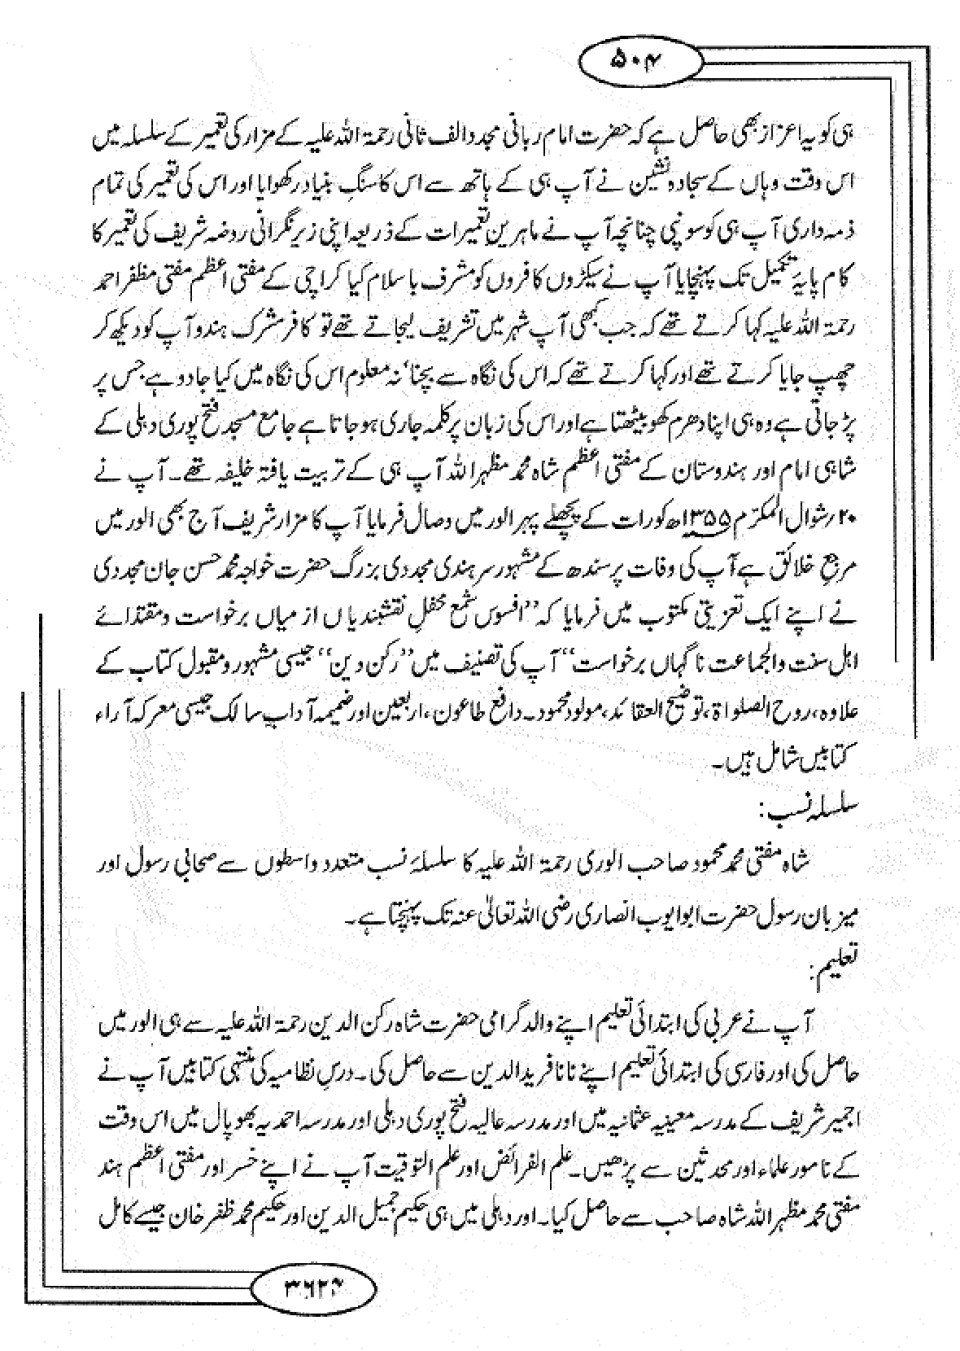 ۵۰۴
ہی کو یہ اعزاز بھی حاصل ہے کہ حضرت امام ربانی مجدد الف ثانی رحمۃ اللہ علیہ کے مزار کی تعمیر کے سلسلہ میں
اس وقت وہاں کے سجادہ نشین نے آپ ہی کے ہاتھ سے اس کا سنگِ بنیاد رکھوایا اور اس کی تعمیر کی تمام
ذمہ داری آپ ہی کو سونپی چنانچہ آپ نے ماہرین تعمیرات کے ذریعہ اپنی زیر نگرانی روضہ شریف کی تعمیر کا
کام پایۂ تکمیل تک پہنچایا آپ نے سیکڑوں کافروں کو مشرف با سلام کیا کراچی کے مفتی اعظم مفتی مظفر احمد
رحمۃ اللہ علیہ کہا کرتے تھے کہ جب کبھی آپ شہر میں تشریف لیجاتے تھے تو کافر مشرک ہندو آپ کو دیکھ کر
چھپ جایا کرتے تھے اور کہا کرتے تھے کہ اس کی نگاہ سے بچنا' نہ معلوم اس کی نگاہ میں کیا جادو ہے جس پر
پڑ جاتی ہے وہ ہی اپنا دھرم کھو بیٹھتا ہے اور اس کی زبان پر کلمہ جاری ہو جاتا ہے جامع مسجد فتح پوری دہلی کے
شاہی امام اور ہندوستان کے مفتی اعظم شاہ محمد مظہر اللہ آپ ہی کے تربیت یافتہ خلیفہ تھے۔ آپ نے
۲۰؍شوال المکرم ۱۳۵۵ھ کو رات کے پچھلے پہر الور میں وصال فرمایا آپ کا مزار شریف آج بھی الور میں
مرجع خلائق ہے آپ کی وفات پر سندھ کے مشہور سرہندی مجددی بزرگ حضرت خواجہ محمد حسن جان مجددی
نے اپنے ایک تعزیتی مکتوب میں فرمایا کہ ”افسوس شمع محفلِ نقشبندیاں از میاں برخواست و مقتدائے
اہل سنت والجماعت ناگہاں برخواست“ آپ کی تصنیف میں ”رکن دین“ جیسی مشہور و مقبول کتاب کے
علاوہ، روح الصلواۃ، توضیح العقائد، مولود محمود۔ دافع طاعون، اربعین اور ضمیمہ آدابِ سالک جیسی معرکہ آراء
کتابیں شامل ہیں۔
سلسلہ نسب:
شاہ مفتی محمد محمود صاحب الوری رحمۃ اللہ علیہ کا سلسلۂ نسب متعدد واسطوں سے صحابی رسول اور
میزبان رسول حضرت ابو ایوب انصاری رضی اللہ تعالیٰ عنہ تک پہنچتا ہے۔
تعلیم:
آپ نے عربی کی ابتدائی تعلیم اپنے والد گرامی حضرت شاہ رکن الدین رحمۃ اللہ علیہ سے ہی الور میں
حاصل کی اور فارسی کی ابتدائی تعلیم اپنے نانا فرید الدین سے حاصل کی۔ درسِ نظامیہ کی منتہی کتابیں آپ نے
اجمیر شریف کے مدرسہ معینیہ عثمانیہ میں اور مدرسہ عالیہ فتح پوری دہلی اور مدرسہ احمدیہ بھوپال میں اس وقت
کے نامور علماء اور محدثین سے پڑھیں۔ علم الفرائض اور علم التوقیت آپ نے اپنے خسر اور مفتی اعظم ہند
مفتی محمد مظہر اللہ شاہ صاحب سے حاصل کیا۔ اور دہلی میں ہی حکیم جمیل الدین اور حکیم محمد ظفر خان جیسے کامل